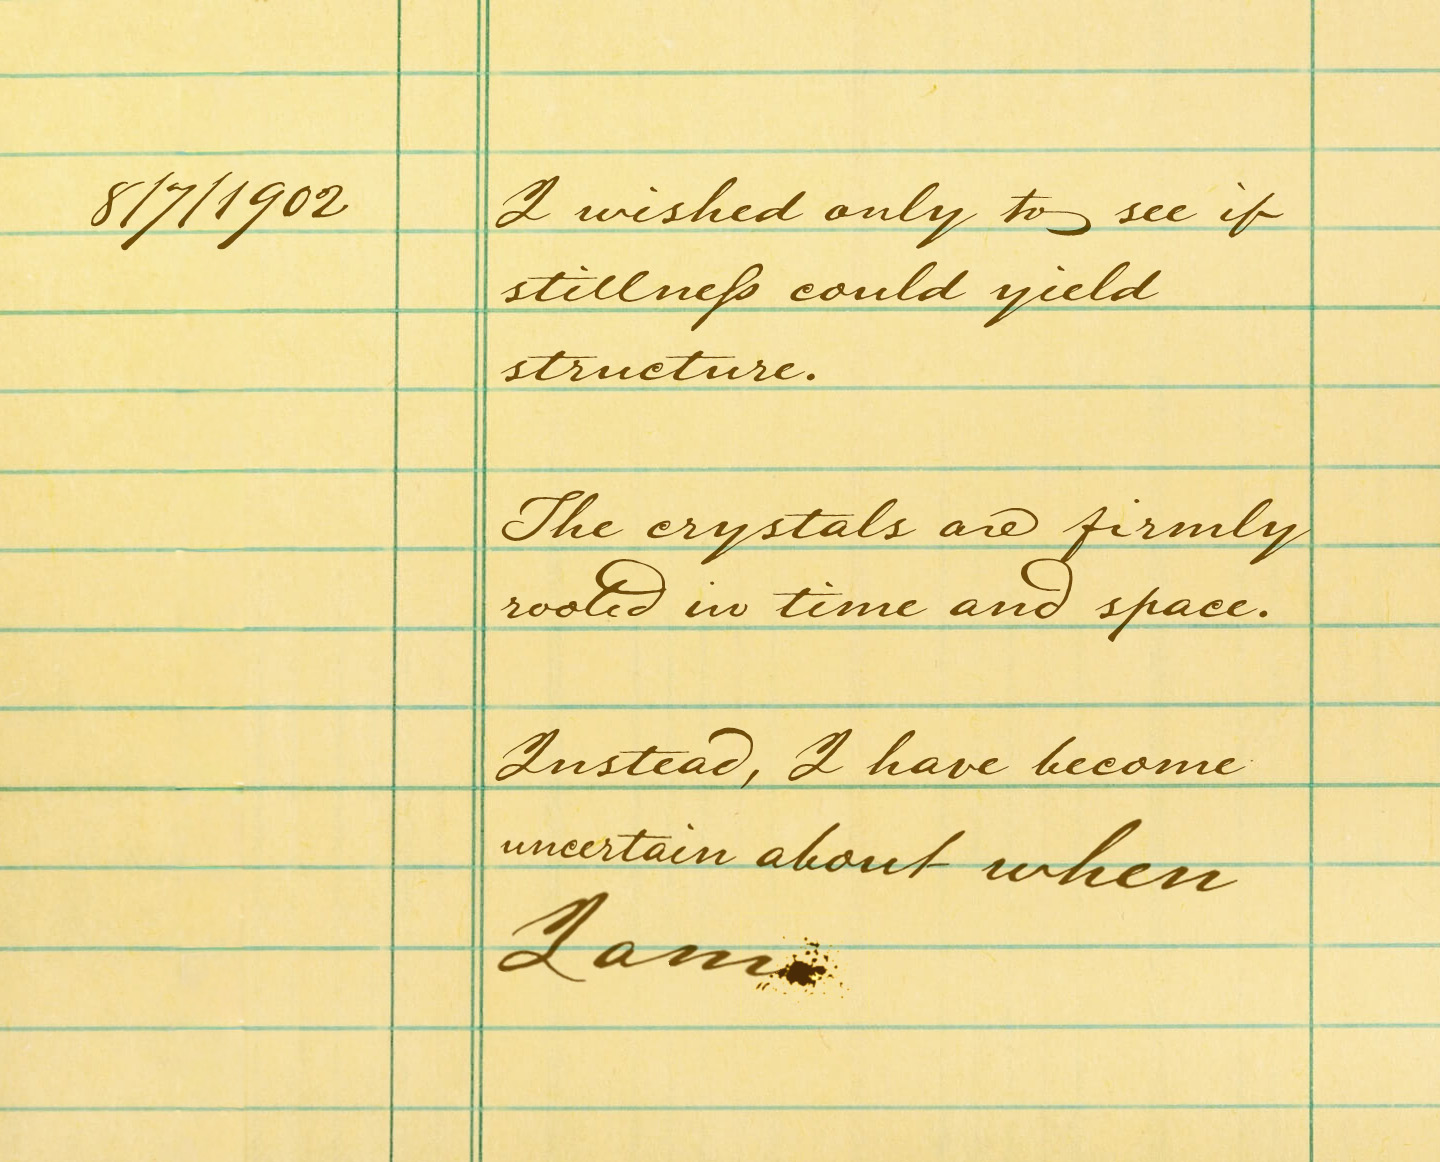 8/7/1902 I wished only to see if
stillness could yield
structure.
The crystals are firmly
rooted in time and space.
Instead, I have become
uncertain about when
I am